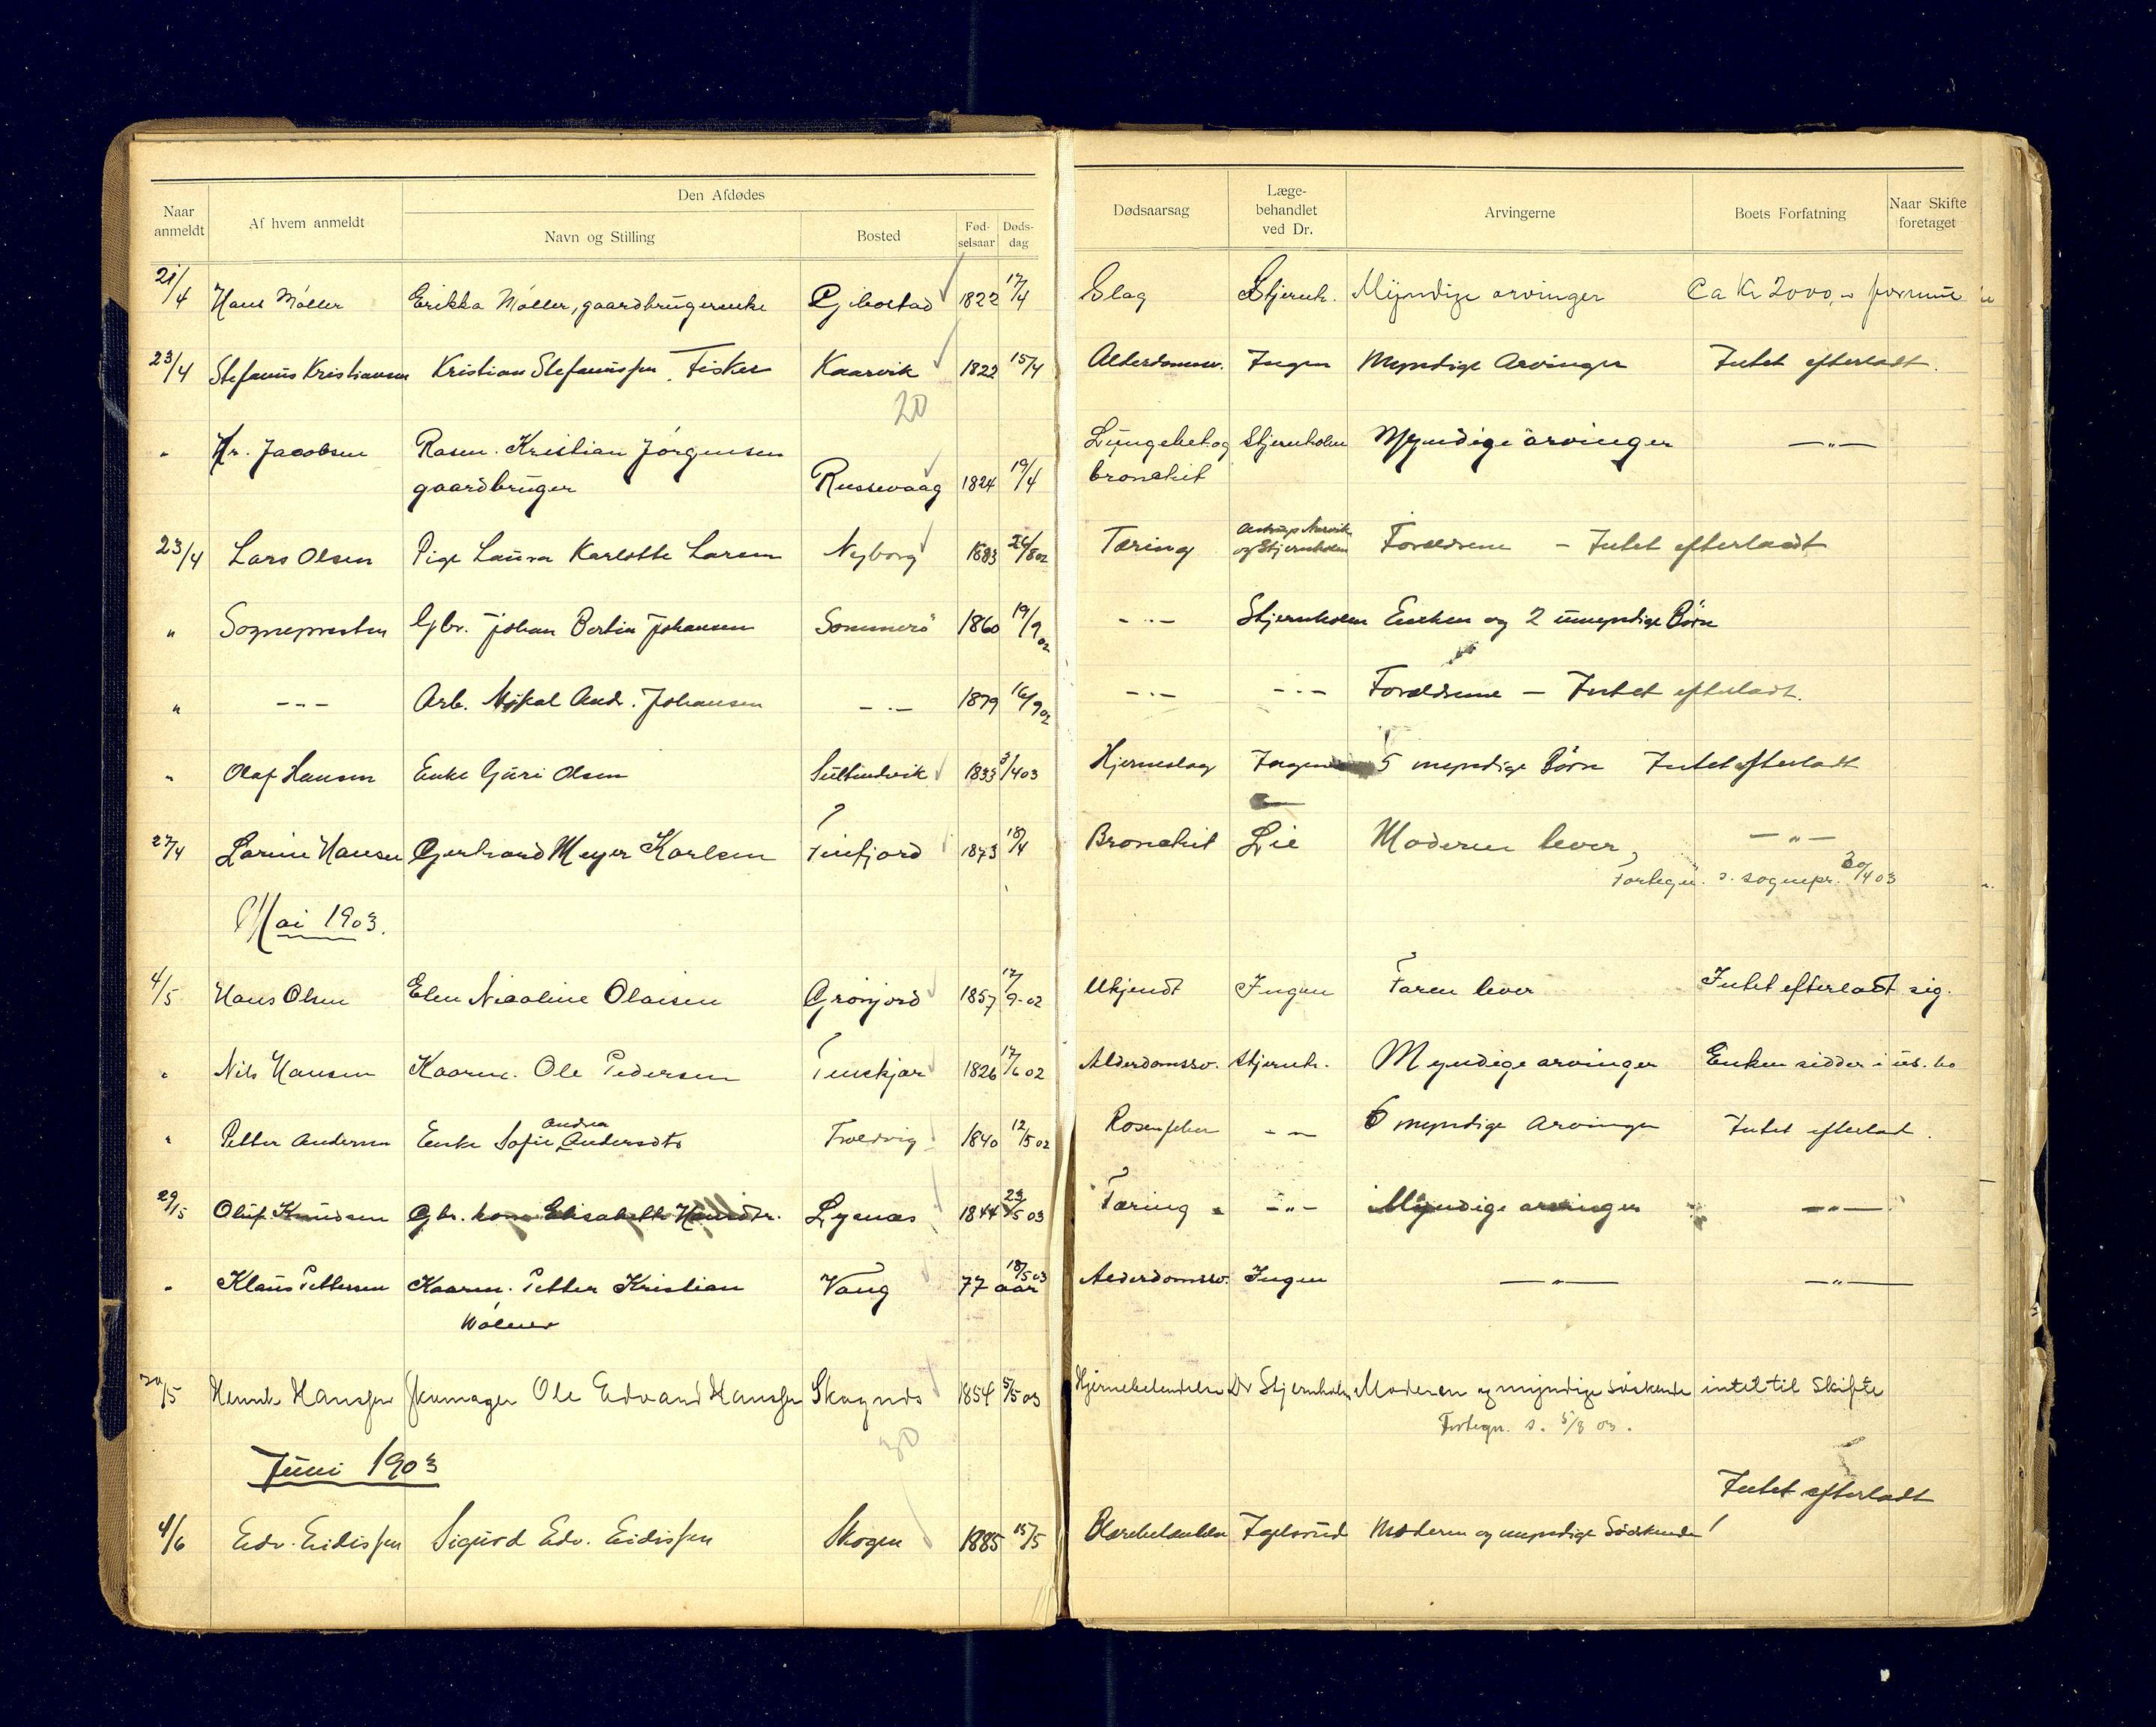 Den Afdødes
Naar anmeldt | Af hvem anmeldt | Navn og Stilling | Bosted | Fød-selsaar | Døds-dag | Dødsaarsag | Læge-behandlet ved Dr. | Arvingerne | Boets Forfatning | Naar Skifte foretaget
21/4 Hans Møller | Erikka Møller, gaardbrugerenke | Gjibostad | 1822 | 17/4 | Slag | Stjernh. | Myndige arvinger | Ca Kr 2000,-
23/4 Stefanus Kristiansen | Kristian Stefanussen, Fisker | Kaarvik | 1822 | 15/4 | Alderdomssv. | Ingen | Myndige Arvinger | Intet efterladt.
20
" Kr. Jacobsen | Kristian Jørgensen | Lungebet. og | Stjernholm | Myndige arvinger | —"—
gaardbruger | Russevaag | 1824 | 19/4 | bronchit
23/4 Lars Olsen | Pige Laura Karlotte Larsen | Nyborg | 1883 | 26/8 02 | Tæring | Narvik og Stjernholm | Forældrene – Intet efterladt
" Sognepresten | Gbr. Johan Bertin Johansen | Sommerø | 1860 | 19/9 02 | -"- | Stjernholm | Enken og 2 umyndige Børn
" -"- | Arb. Mikal Andr. Johansen | -"- | 1879 | 16/9 02 | -"- | -"- | Forældrene – Intet efterladt.
" Olaf Hansen | Enke Guri Olsen | Sultindvik | 1833 | 3/4 03 | Hjerneslag | Ingen | 5 myndige Børn | Intet efterladt
27/4 Larine Hansen | Gerhard Meyer Karlsen | Tinfjord | 1873 | 18/4 | Bronchit | Lie | Moderen lever, | —"—
Fortegn. s. sognepr. 30/4 03
Mai 1903.
4/5 Hans Olsen | Elen Nicoline Olaisen | Grønjord | 1857 | 17/9-02 | Ukjendt | Ingen | Faren lever | Intet efterladt sig.
" Nils Hansen | Kaarm. Ole Pedersen | Tenskjær | 1826 | 17/6 02 | Alderdomssv. | Stjernh. | Myndige arvinger | Enken sidder i us. bo
" Petter Andersen | Enke Sofie Andrea Andersdtr | Troldvig | 1840 | 12/5 02 | Rosenfeber | -"- | 6 myndige Arvinger | Intet efterlad.
29/5 Oluf Knudsen | Gbr. kone Elisabeth Hansdtr. | Lysnæs | 1844 | 23/5 03 | Tæring | -"- | Myndige arvinger | —"—
" Klaus Pettersen | Kaarm. Petter Kristian | Vang | 77 aar | 18/5 03 | Alderdomssv. | Ingen | —"— | —"—
Wolner
30/5 Henrik Hanssen | Skomager Ole Edvard Hanssen | Skognes | 1854 | 5/5 03 | Hjernebetendelse | Dr Stjernholm | Moderen og myndige søskende | intet til Skifte
Fortegn. s. 5/8 03.
20
Juni 1903
Intet efterladt
4/6 Edv. Eidissen | Sigurd Edv. Eidissen | Skogen | 1885 | 15/5 | Fogelsrud | Moderen og myndige Södskende